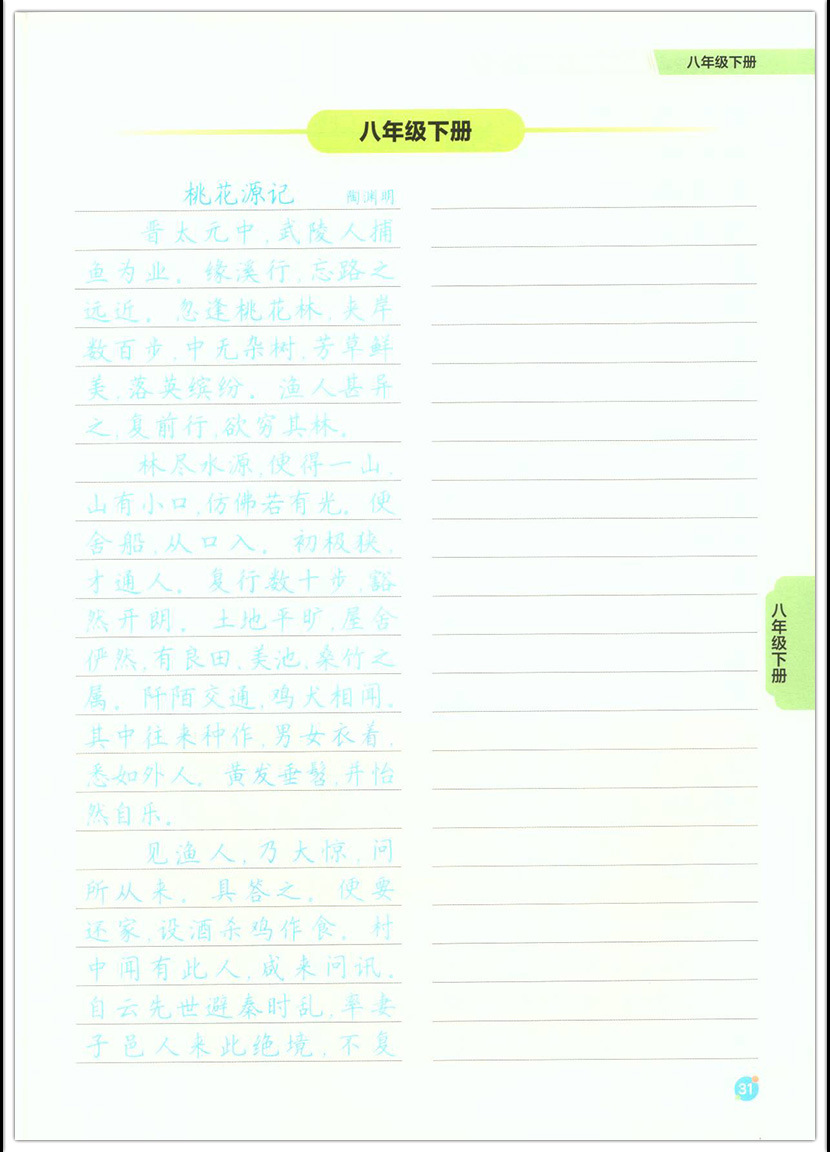 八年级下册
八年级下册
桃花源记 陶渊明
晋太元中，武陵人捕
鱼为业。缘溪行，忘路之
远近。忽逢桃花林，夹岸
数百步，中无杂树，芳草鲜
美，落英缤纷。渔人甚异
之，复前行，欲穷其林。
林尽水源，便得一山，
山有小口，仿佛若有光。便
舍船，从口入。初极狭，
才通人。复行数十步，豁
然开朗。土地平旷，屋舍
俨然，有良田、美池、桑竹之
属。阡陌交通，鸡犬相闻。
其中往来种作，男女衣着，
悉如外人。黄发垂髫，并怡
然自乐。
见渔人，乃大惊，问
所从来。具答之。便要
还家，设酒杀鸡作食。村
中闻有此人，咸来问讯。
自云先世避秦时乱，率妻
子邑人来此绝境，不复
八年级下册
31